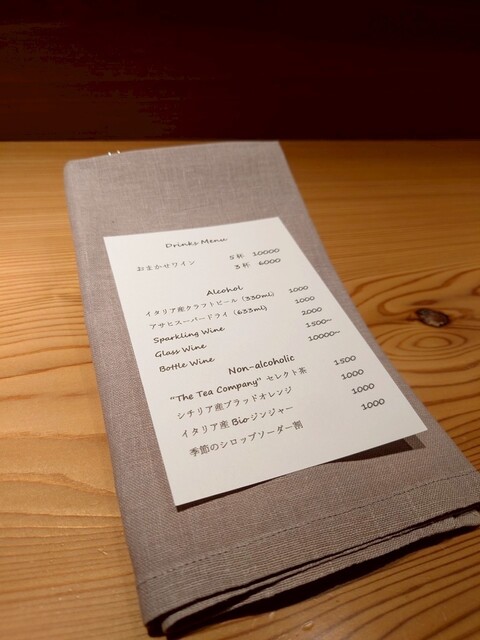 Drinks Menu
おまかせワイン 5杯 10000
3杯 6000
Alcohol
イタリア産クラフトビール (330ml) 1000
アサヒスーパードライ (633ml) 1000
Sparkling Wine 2000
Glass Wine 1500~
Bottle Wine 10000~
Non-alcoholic
"The Tea Company" セレクト茶 1500
シチリア産ブラッドオレンジ 1000
イタリア産Bioジンジャー 1000
季節のシロップソーダー割 1000